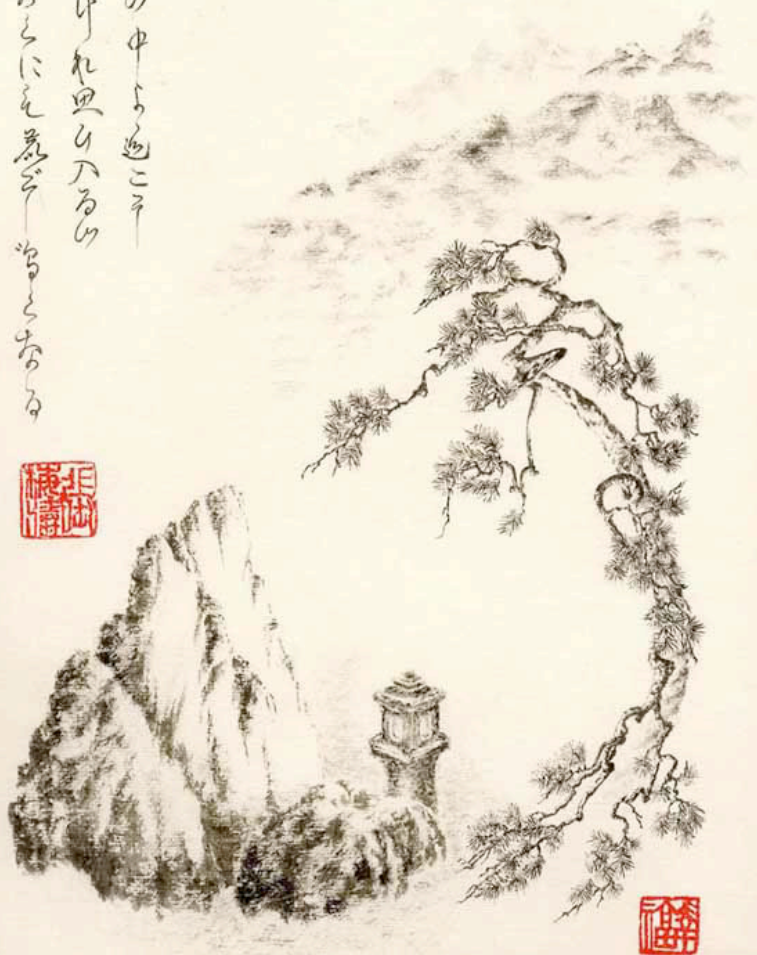 の中よ道こそ
けれ思ひ入る山
くにも鹿ぞ鳴くなる